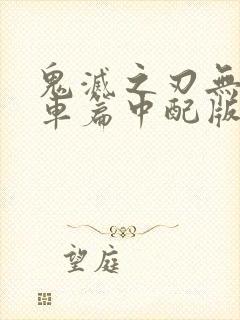 鬼滅之刃無
車篇中配版
望庭